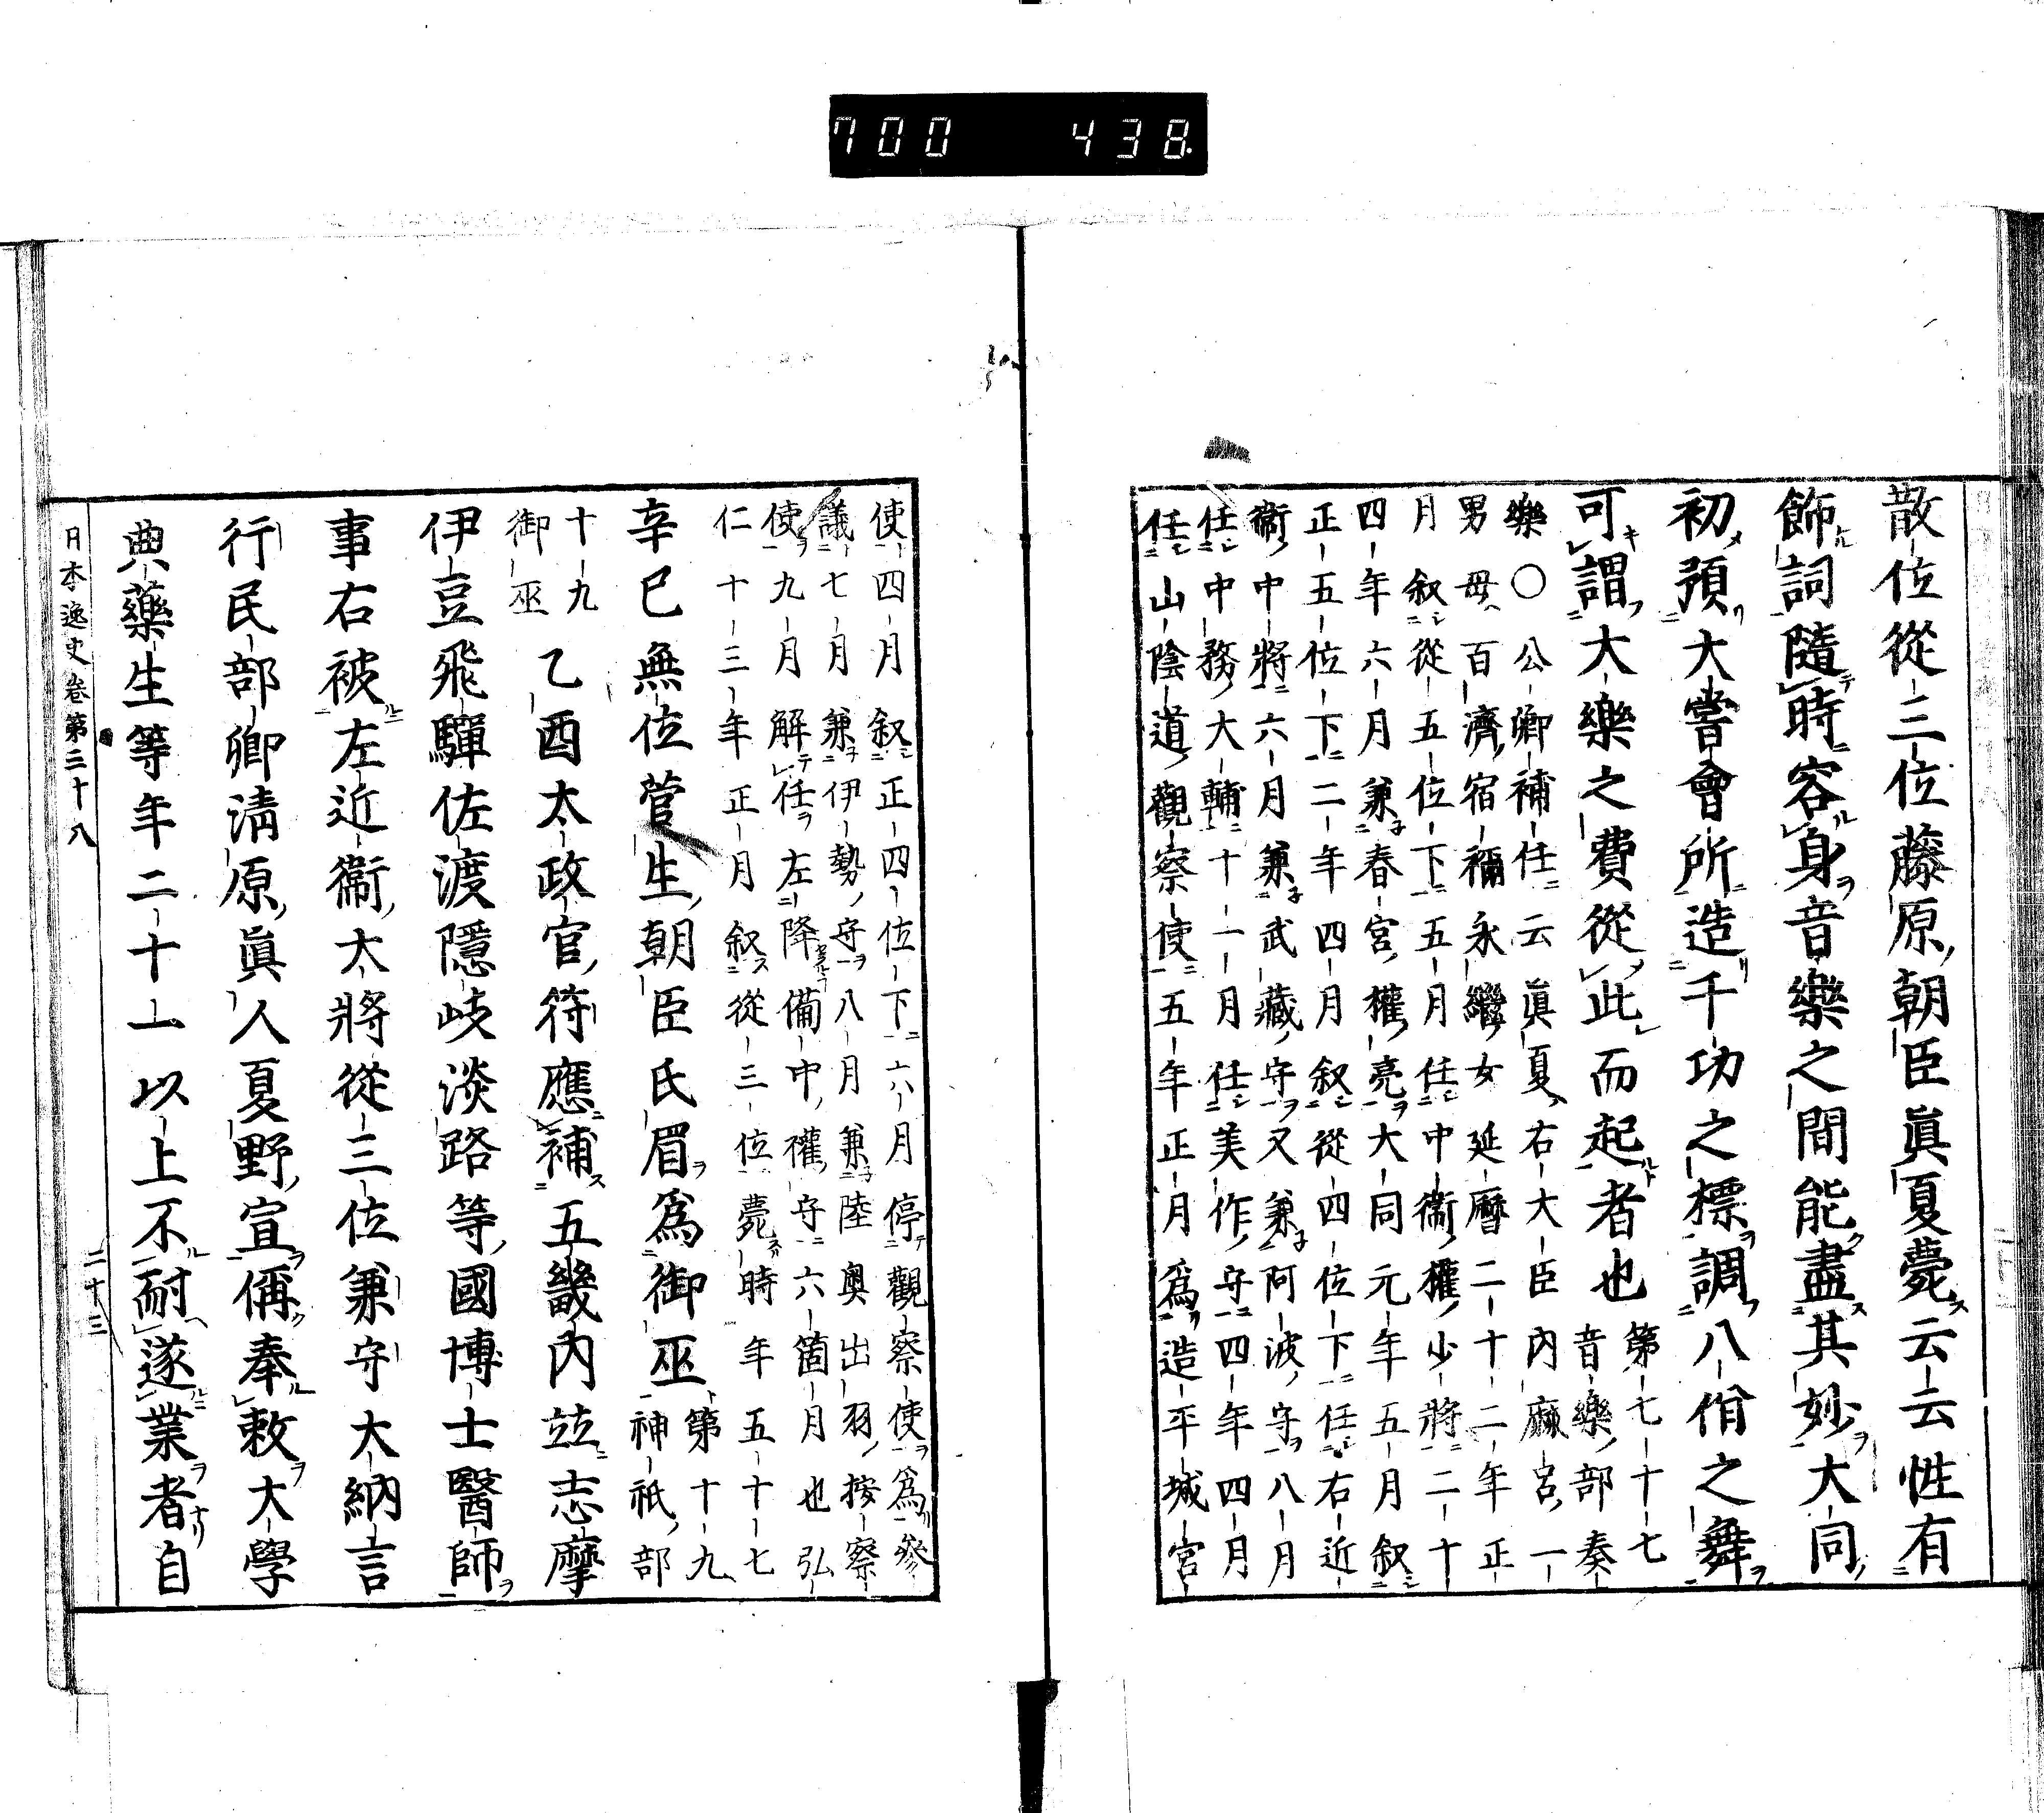 700 438
散位從三位藤原朝臣眞夏薨云云性有
飾詞隨時容身音樂之間能盡其妙大同
初預大嘗會所造千功之標調八佾之舞
可謂大樂之費從此而起者也
第七十七
音樂部奏
樂○公卿補任云眞夏右大臣內麻呂一
男母百濟宿禰永繼女延曆二十二年正
月叙從五位下五月任中衞權少將二十
四年六月兼春宮權亮大同元年五月叙
正五位下二年四月叙從四位下任右近
衞中將六月兼武藏守又兼阿波守八月
任中務大輔十一月任美作守四年四月
任山陰道觀察使五年正月爲造平城宮
使四月叙正四位下六月停觀察使爲參
議七月兼伊勢守八月兼陸奧出羽按察
使九月解任左降備中權守六箇月也弘
仁十三年正月叙從三位薨時年五十七
辛巳無位菅生朝臣氏眉爲御巫
第十九
神祇部
十九
御巫
乙酉太政官符應補五畿內竝志摩
伊豆飛驒佐渡隱岐淡路等國博士醫師
事右被左近衞大將從三位兼守大納言
行民部卿淸原眞人夏野宣偁奉敕大學
典藥生等年二十一以上不耐遂業者自
日本逸史卷第三十八
二十三